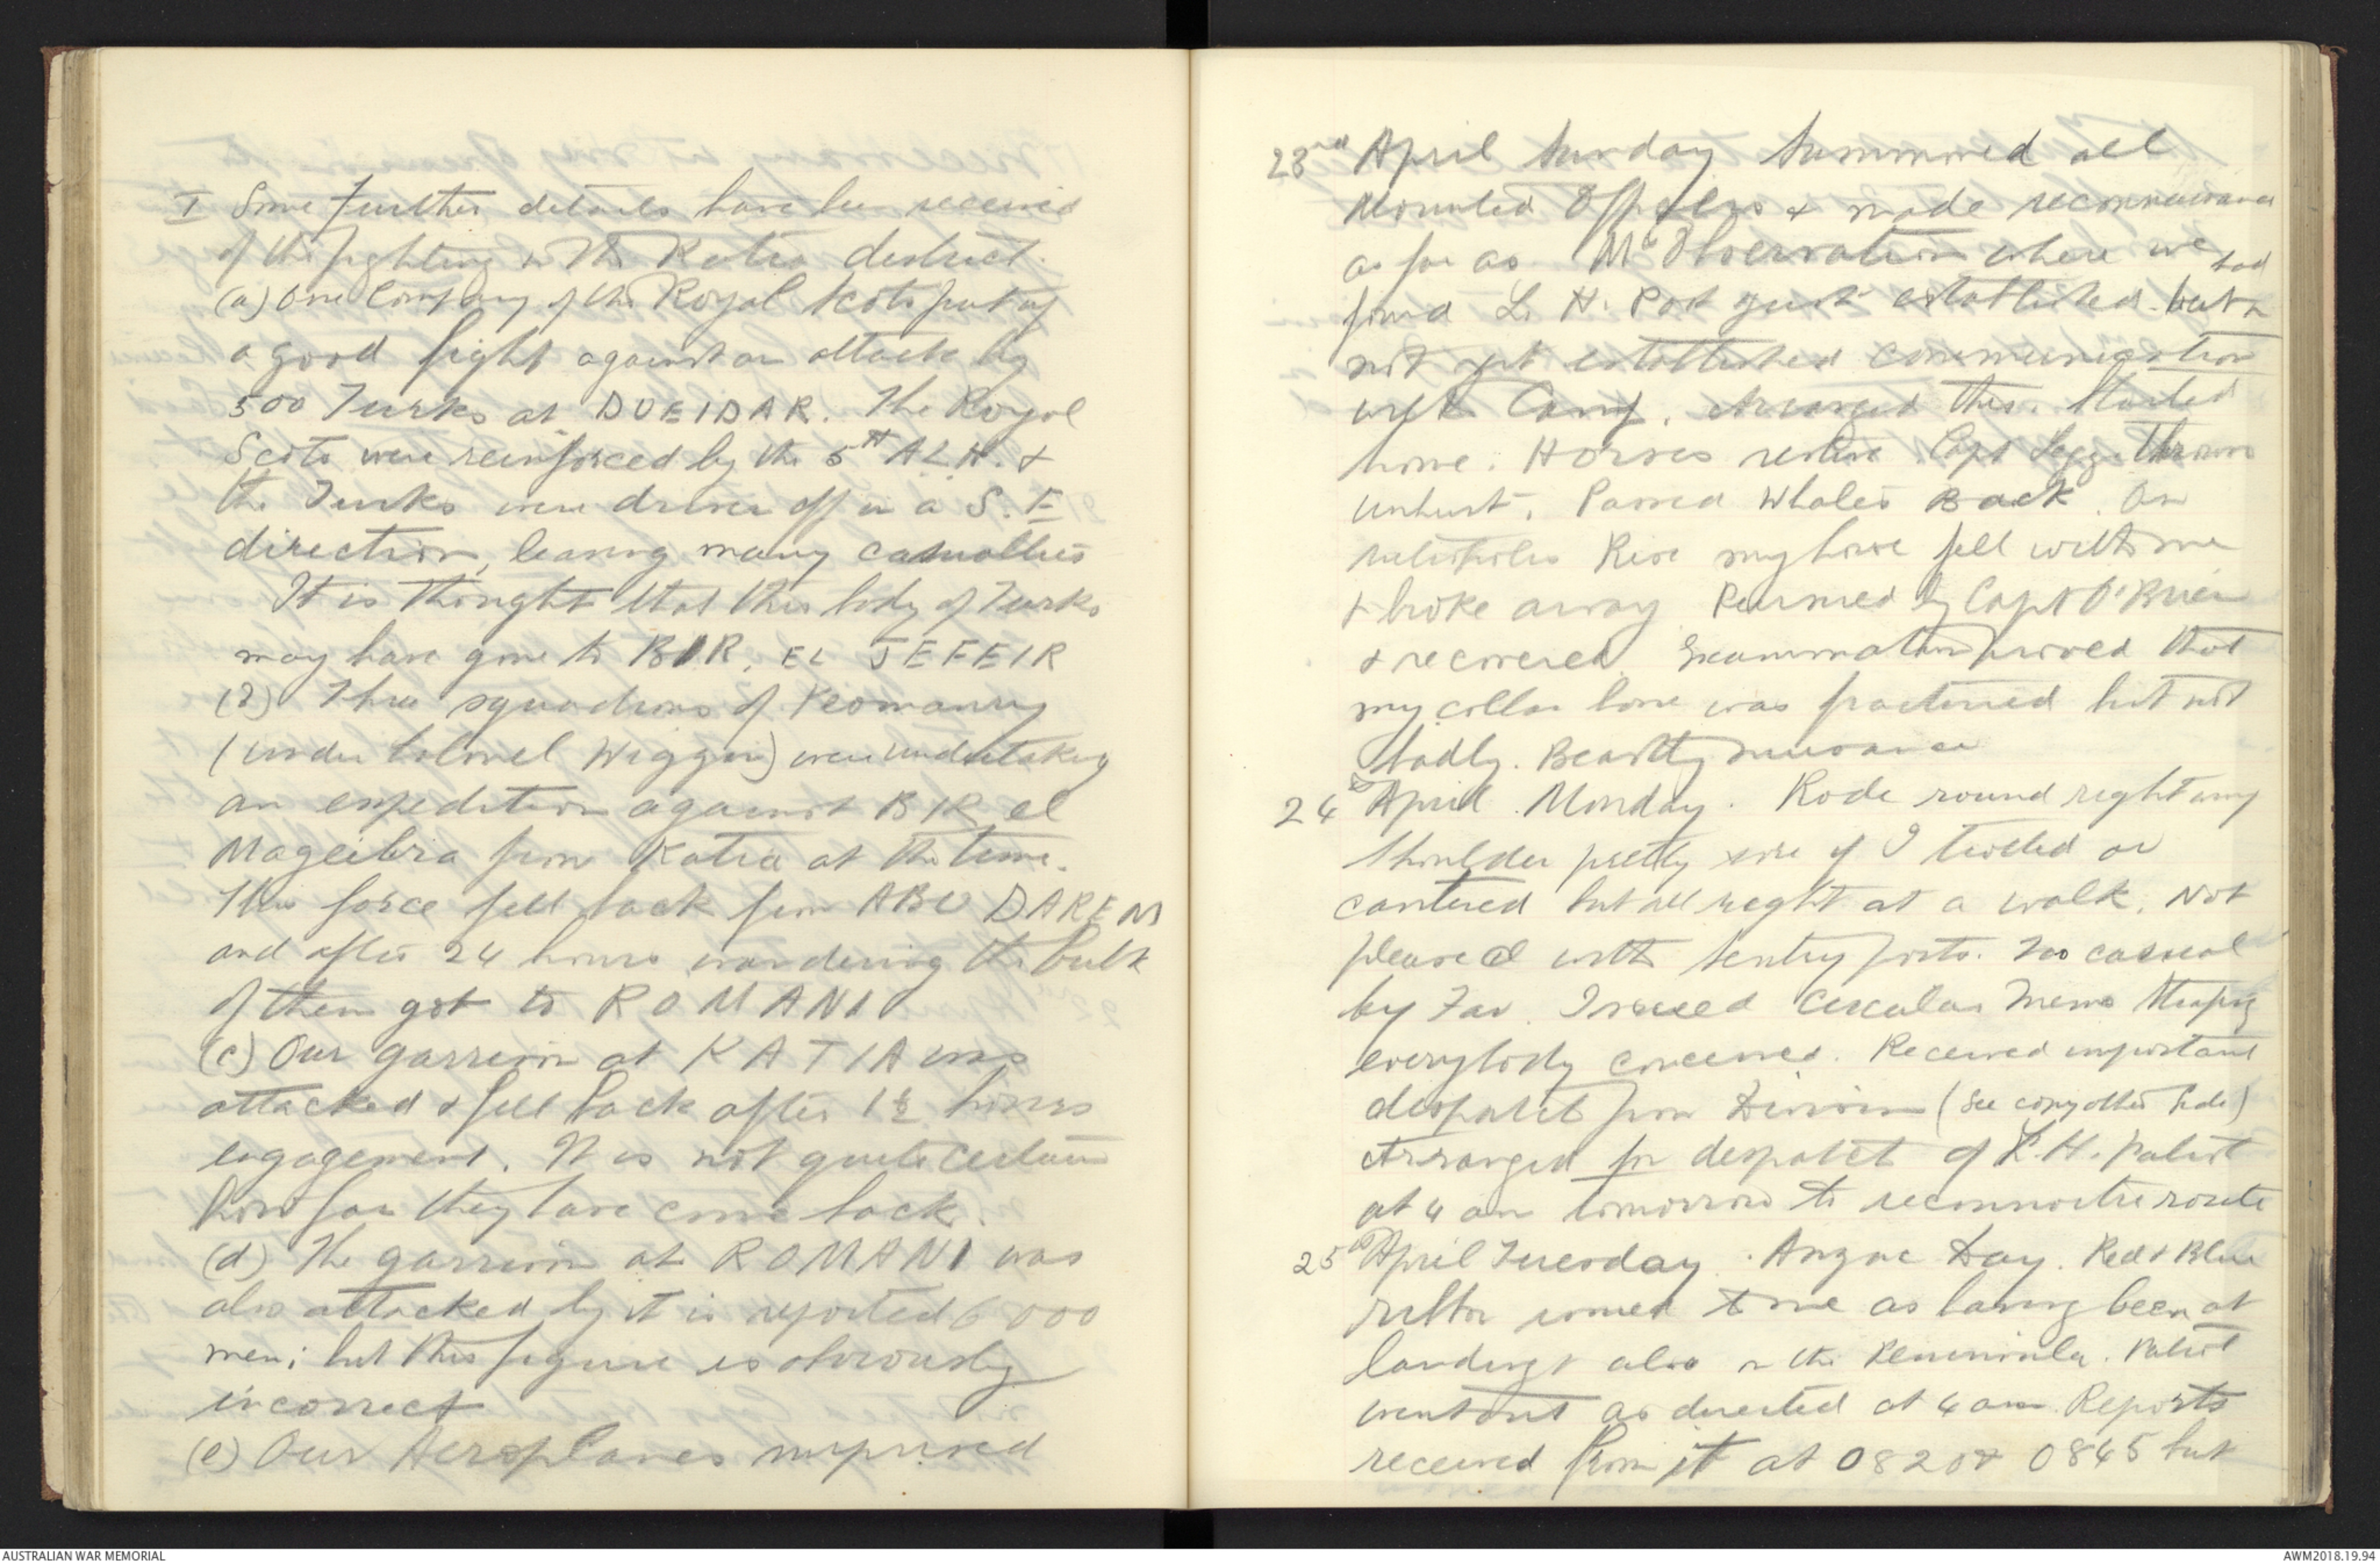 I Some further details have been received
of the fighting in the Katia district.
(a) One Company of the Royal Scots put up
a good fight against an attack by
500 Turks at DUEIDAR. The Royal
Scots were reinforced by the 5th A L H. &
the Turks were driven off in a S. E
direction, leaving many casualties
It is thought that this body of Turks
may have gone to BIR. EL JEFEIR
(2) Three squadrons of Yeomanry
(under Colonel Wiggin) were undertaking
an expedition against BIR el
Mageibra from Katia at the time.
This force fell back from ABU DAREM
and after 24 hours wandering the bulk
of them got to ROMANI
(c) Our garrison at KATIA was
attacked & fell back after 1½ hours
engagement. It is not quite certain
how far they have come back.
(d) The garrison at ROMANI was
also attacked by it is reported 6000
men; but this figure is obviously
incorrect
(e) Our Aeroplanes surprised
23rd April Sunday Summoned all
Mounted Officers & made reconnaissance
as far as Mt Observation where we
found L. H. Post just established. but had
not yet established communication
with Camp. Arranged this. Started
home. Horses restive. Capt Legge thrown
unhurt. Passed Whales Back. On
Rise my horse fell with me
& broke away Pursued by Capt O'Brien
& recovered. Examination proved that
my collar bone was fractured but not
badly. Beastly nuisance
24th April. Monday. Rode round right away
Shoulder pretty sore if I trotted or
cantered but all right at a walk. Not
pleased with sentry posts. Too casual
by Far. Issued Circular Memo
everybody concerned. Received important
despatch from Division (See copy other side)
Arranged for despatch of L.H. patrol
at 4 am tomorrow to reconnoitre route
25th April Tuesday. Anzac Day. Red & Blue
ribbon issued to me as having been at
landing & also on the Peninsula. Patrol
went out as directed at 4 am. Reports
received from it at 0820 & 0845 but
AUSTRALIAN WAR MEMORIAL
AWM2018.19.94